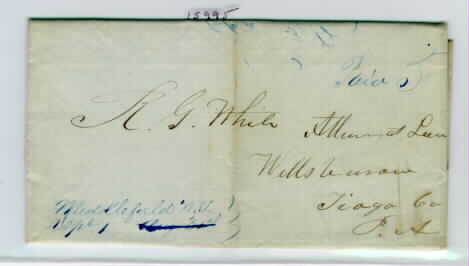 15995
Paid 5
R. G. White
Attorney at Law
Wellsborow
Tioga Co
P. A
Sept 1